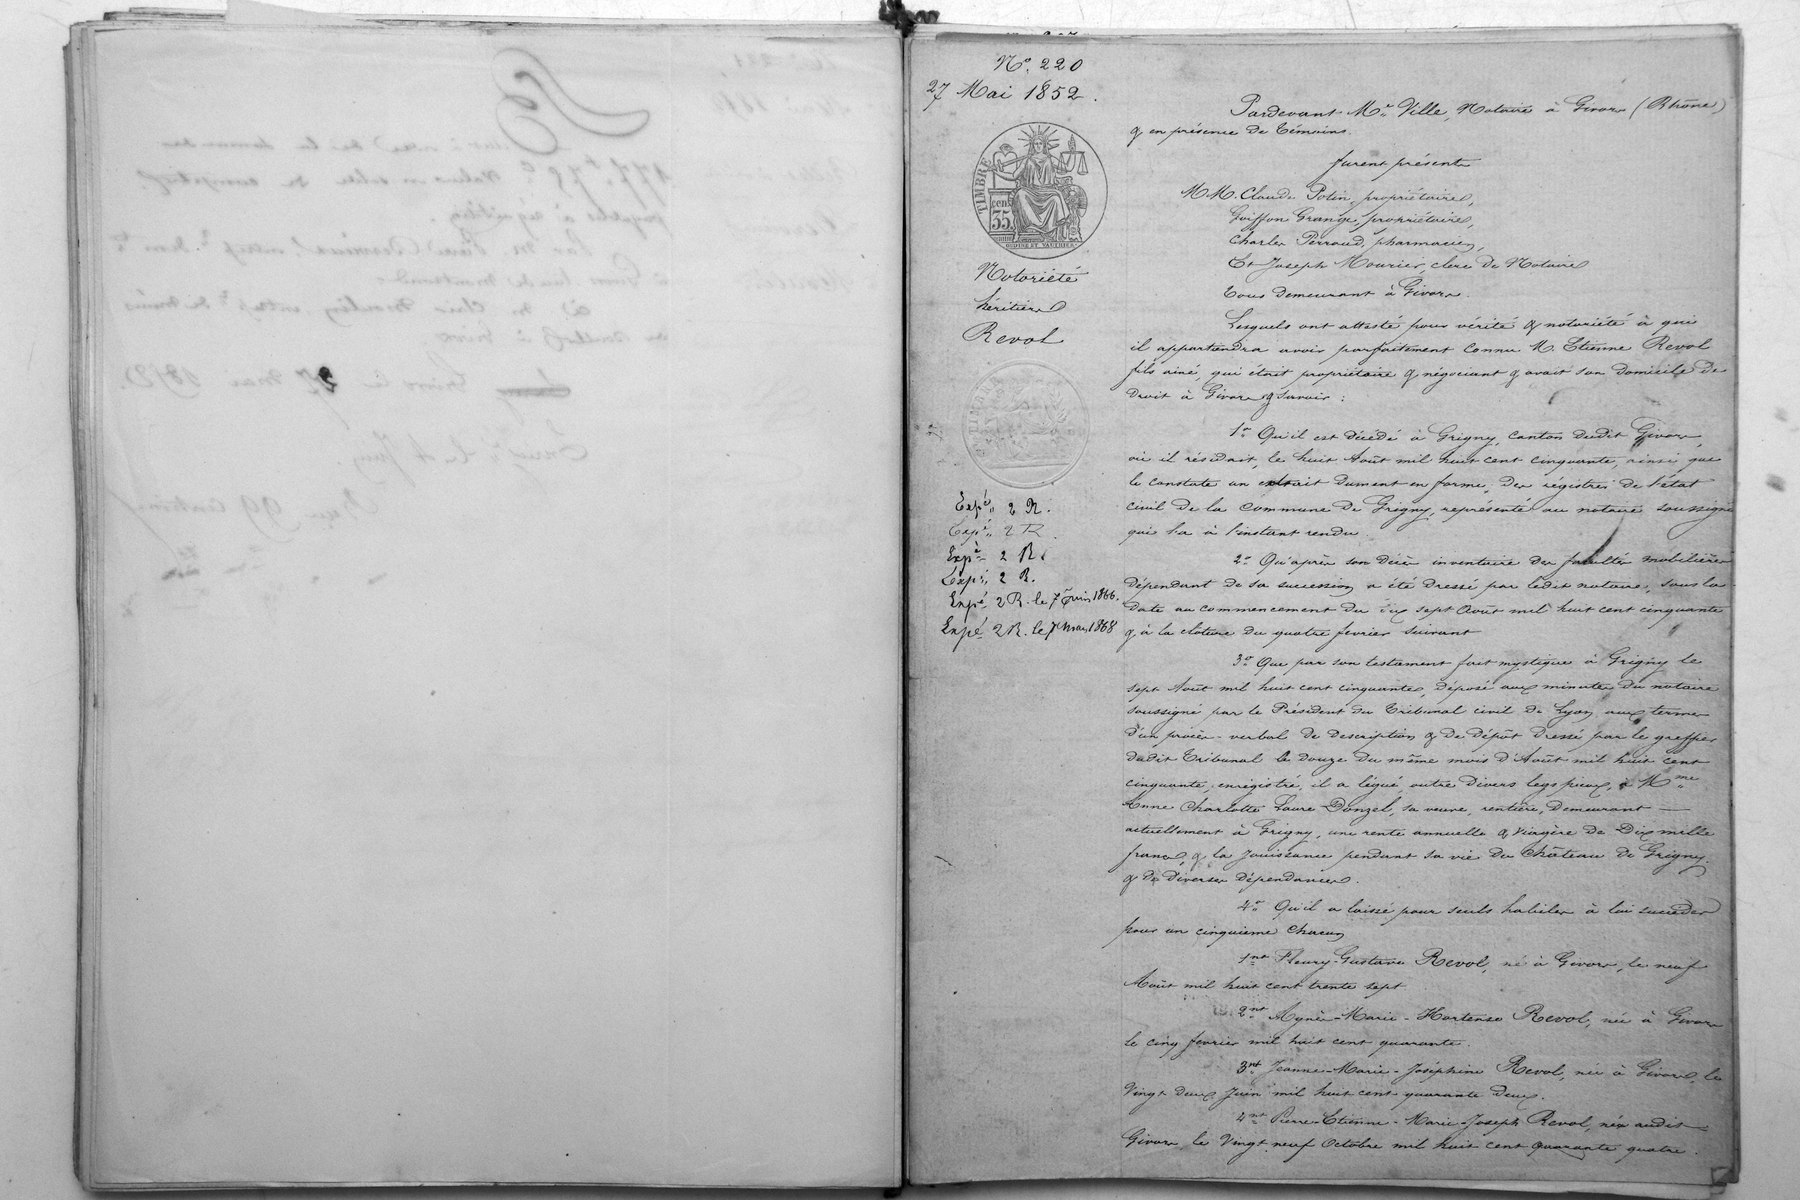 N° 220
27 Mai 1852.
TIMBRE
cent 35
Notoriété
héritiers
Revol
Expé 2 R.
Expé 2 R.
Expé 2 R.
Expé 2 R.
Expé 2 R. le 7 Juin 1866.
Expé 2 R. le 7 Mars 1868
Pardevant Me Ville, Notaire à Givors (Rhône)
& en présence de témoins.
furent présents
M.M. Claude Potin, propriétaire,
Guiffon Grange, propriétaire,
Charles Perraud, pharmacien,
Et Joseph Mourier, clerc de Notaire
Tous demeurant à Givors.
Lesquels ont attesté pour vérité & notoriété à qui
il appartiendra avoir parfaitement connu M. Etienne Revol
fils ainé, qui était propriétaire & négociant & avait son domicile de
droit à Givors & savoir :
1° Qu'il est décédé à Grigny, canton dudit Givors,
où il résidait, le huit Août mil huit cent cinquante, ainsi que
le constate un extrait dument en forme, des régistres de l'état
civil de la Commune de Grigny, représenté au notaire soussigné
qui l'a à l'instant rendu.
2° Qu'après son décès inventaire des facultés mobilières
dépendant de sa succession a été dressé par ledit notaire, sous la
date au commencement du dix sept Août mil huit cent cinquante
& à la cloture du quatre février suivant
3° Que par son testament fait mystique à Grigny le
sept Août mil huit cent cinquante, déposé aux minutes du notaire
soussigné par le Président du Tribunal civil de Lyon, aux termes
d'un procès-verbal de description & de dépôt dressé par le greffier
dudit Tribunal le douze du même mois d'Août mil huit cent
cinquante, enregistré, il a légué, outre divers legs pieux, à Mme
Anne Charlotte Laure Donzel, sa veuve, rentière, demeurant —
actuellement à Grigny, une rente annuelle & viagère de Dix mille
francs, & la jouissance pendant sa vie du Château de Grigny
& de diverses dépendances.
4° Qu'il a laissé pour seuls habiles à lui succéder
pour un cinquième chacun
1nt Fleury-Gustave Revol, né à Givors, le neuf
Août mil huit cent trente sept
2nt Agnès-Marie-Hortense Revol, née à Givors
le cinq février mil huit cent quarante.
3nt Jeanne-Marie-Joséphine Revol, née à Givors, le
Vingt deux Juin mil huit cent quarante deux.
4nt Pierre-Etienne-Marie-Joseph Revol, né audit
Givors, le Vingt neuf Octobre mil huit cent quarante quatre.